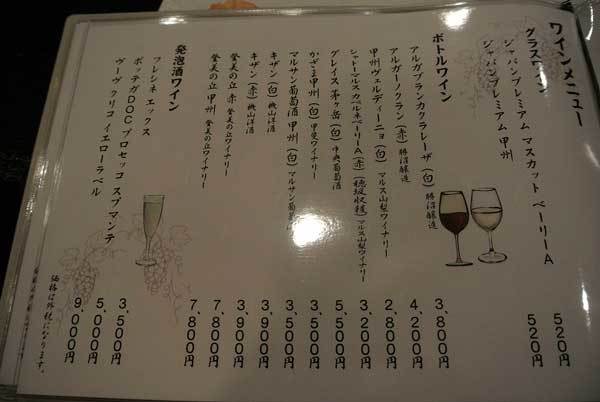 ワインメニュー
グラスワイン
ジャパンプレミアム マスカットベーリーA 520円
ジャパンプレミアム 甲州 520円
ボトルワイン
アルガブランカクラレーザ (白) 勝沼醸造 3,800円
アルガーノクラン (赤) 勝沼醸造 4,200円
甲州ヴェルディーニョ (白) マルス山梨ワイナリー 2,800円
シャトーマルスカベルネベーリーA (赤) (穂坂収穫) マルス山梨ワイナリー 3,200円
グレイス茅ヶ岳 (白) 中央葡萄酒 5,500円
かざま甲州 (白) 甲斐ワイナリー 3,500円
マルサン葡萄酒 甲州 (白) マルサン葡萄酒 3,500円
キザン (白) 機山洋酒 3,900円
キザン (赤) 機山洋酒 3,900円
登美の丘 赤 登美の丘ワイナリー 7,800円
登美の丘 甲州 登美の丘ワイナリー 7,800円
発泡酒ワイン
フレシネ エックス 3,500円
ボッテガDOC プロセッコ スプマンテ 5,000円
ヴーヴ クリコ イエローラベル 9,000円
価格は外税になります。